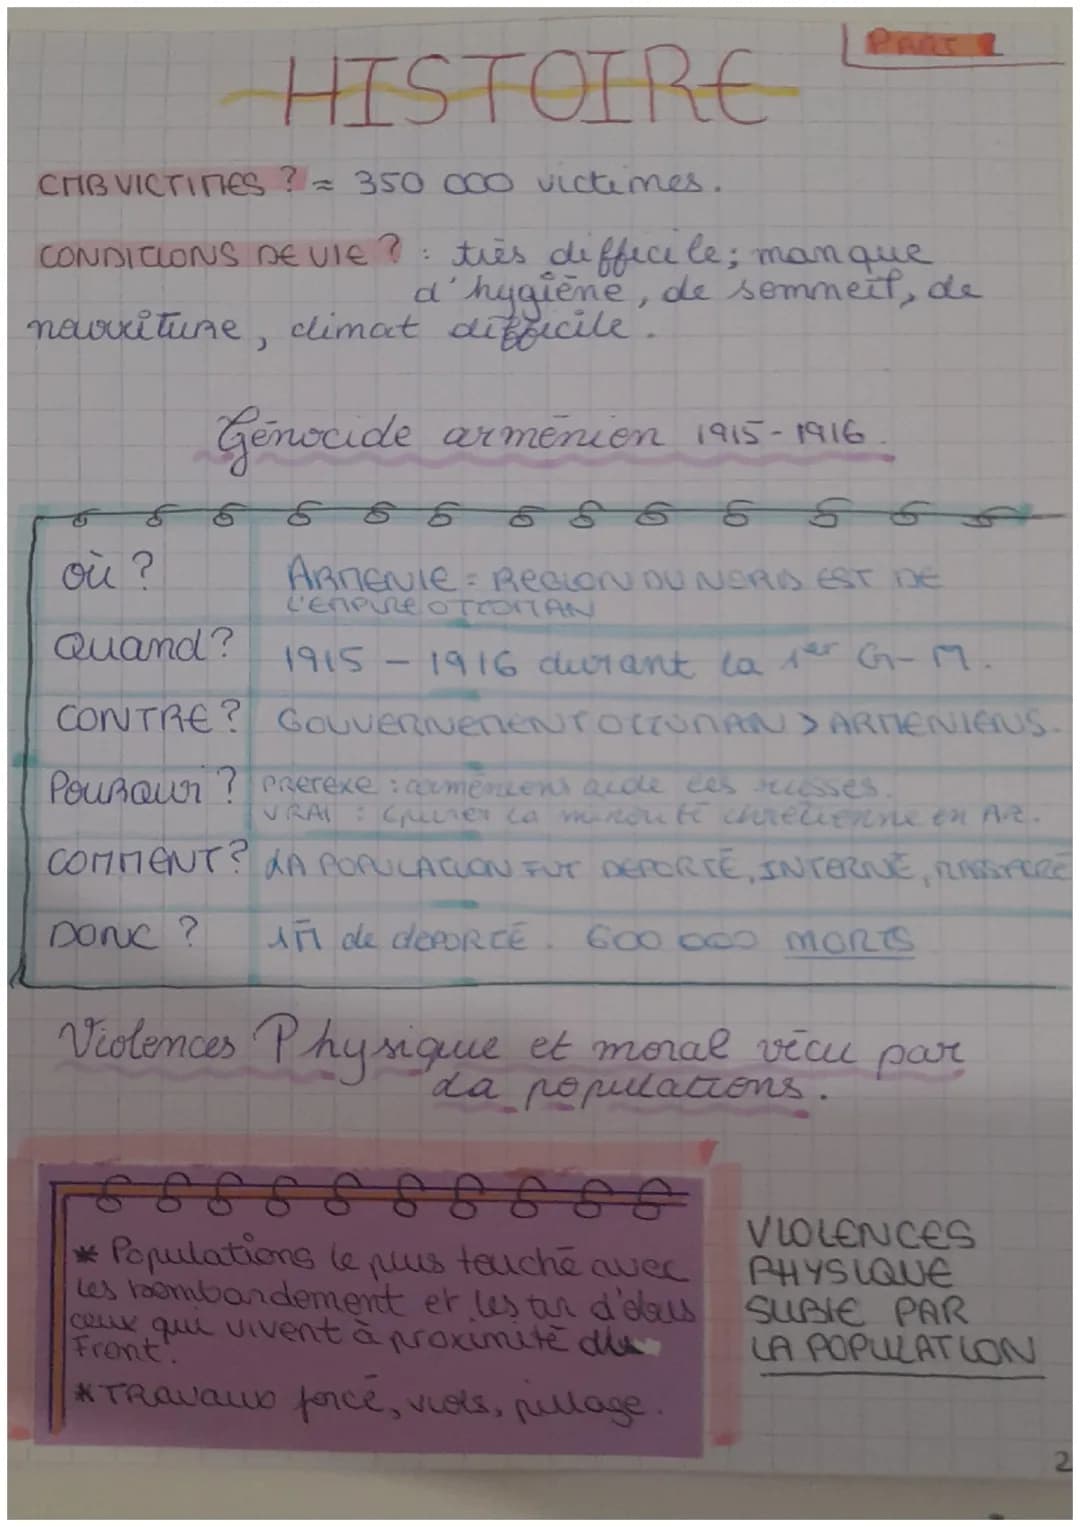 PART 1
HISTOIRE
CMB VICTIMES ? = 350 000 victimes.
CONDITIONS DE VIE ? : très difficile ; manque
d'hygiène, de sommeil, de
nourriture, climat difficile.
Génocide arménien 1915-1916.
Où ?
ARMENIE = REGION DU NORD EST DE
L'EMPIRE OTTOMAN
Quand ?
1915 - 1916 durant la 1er G-M.
CONTRE ?
GOUVERNEMENT OTTOMAN > ARMENIENS.
POURQUOI ?
PRETEXE : arméniens aide les russes.
VRAI : la minouté chrétienne en AR.
COMMENT ?
LA POPULATION FUT DEPORTÉ, INTERNÉ, MASSACRÉ
DONC ?
1M de DEPORTÉ. 600 000 MORTS
Violences Physique et moral vécu par
la populations.
* Populations le plus touché avec
les bombardement et les tir d'obus
ceux qui vivent à proximité du
Front.
* TRavaux forcé, viols, pillage.
VIOLENCES
PHYSIQUE
SUBIE PAR
LA POPULATION
2